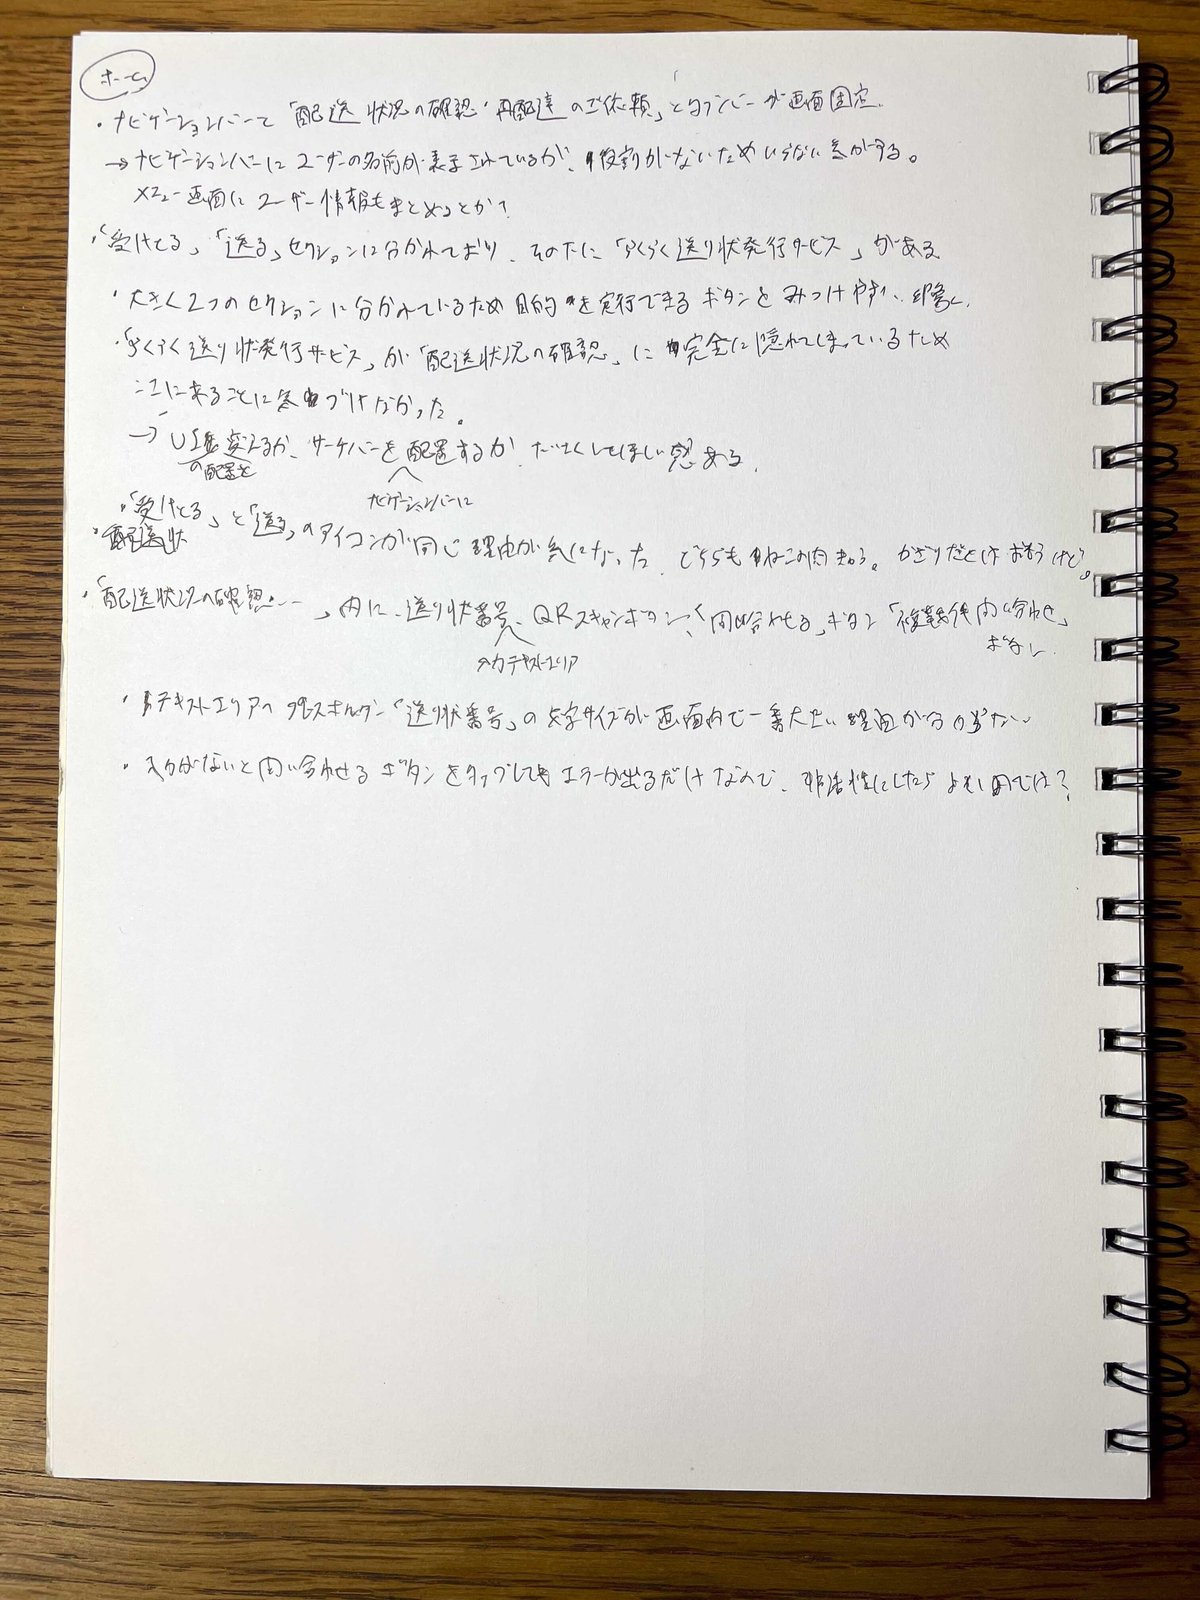 ホーム
・ナビゲーションバーと「配送状況の確認・再配達のご依頼」とタブバーが画面固定
→ナビゲーションバーにユーザーの名前が表示されているが、役割がないためいらない気がする。
メニュー画面にユーザー情報もまとめるとか?
・「受けとる」「送る」セクションに分かれており、その下に「らくらく送り状発行サービス」がある
・大きく2つのセクションに分かれているため目的を実行できるボタンをみつけやすい印象
・「らくらく送り状発行サービス」が「配送状況の確認」に完全に隠れてしまっているため
ここに来ることに気づけなかった。
→UIの配置を変えるか、サーチバーをナビゲーションバーに配置するか、だなくしてほしい感ある。
・「受けとる」と「送る」のアイコンが同じ理由が気になった。どちらもねこの肉きゅう。かざりだとは思うけど。
・「配送状況の確認…」内に、送り状番号入力テキストエリア、QRスキャンボタン、「問い合わせる」ボタン「複数件問い合わせ」ボタン
・テキストエリアのプレスホルダー「送り状番号」の文字サイズが画面内で一番大きい理由が分からない
・入力がないと問い合わせるボタンをタップしてもエラーが出るだけなので、非活性にしたらよいのでは?